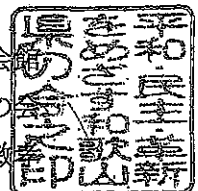 平和・民主・革新
をめざす和歌山
県の会之印
会館
の会